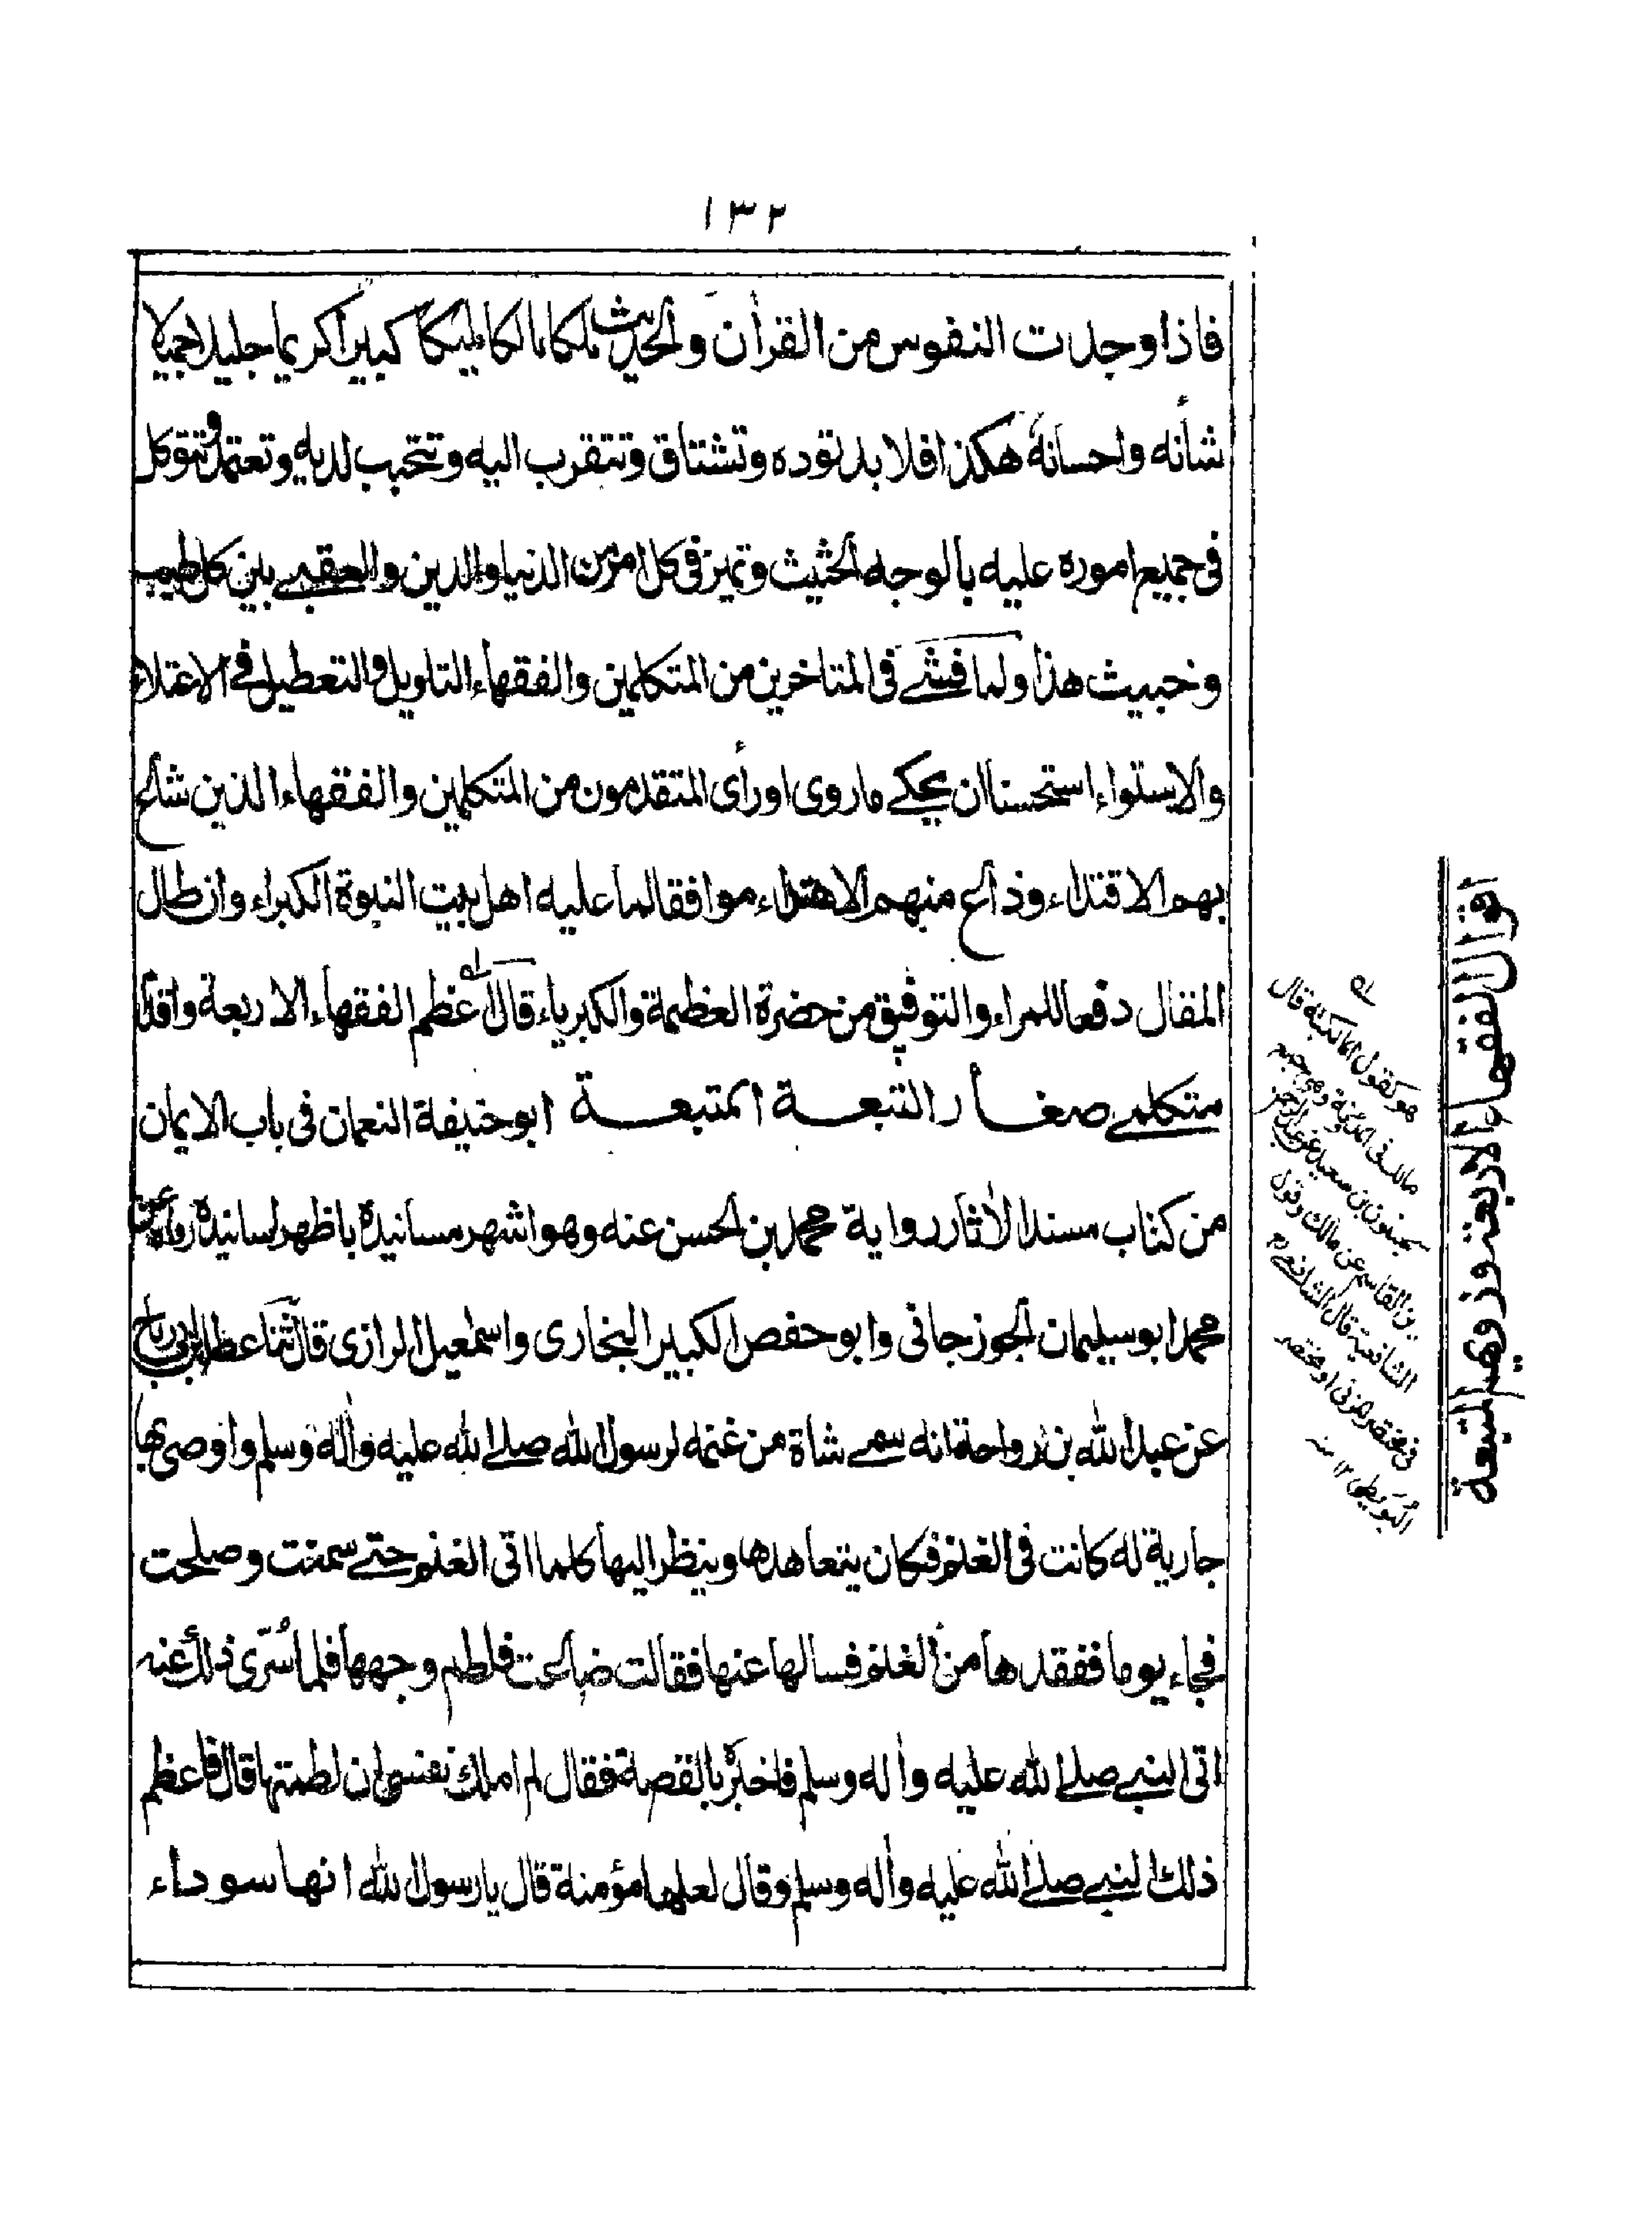 ۱۳۲
فاذا وجدت النفوس من القرأن والحديث ملكا مالكا مليكا كبيرا كريما جليلا جميلا
شأنه واحسانه هكذا فلا بد توده وتشتاق وتتقرب اليه وتتحبب لديه وتعتمد وتتوكل
فى جميع اموره عليه بالوجه الحثيث وتميز فى كل امر من الدنيا والدين والعقبے بين كل طيب
وخبيث هذا ولما فشے فى المتاخرين من المتكلمين والفقهاء التاويل والتعطيل فے الاعتلاء
والاستواء استحسنا ان يحكے ماروى او رأى المتقدمون من المتكلمين والفقهاء الذين شاع
بهم الاقتداء وذاع منهم الاهتداء موافقا لما عليه اهل بيت النبوة الكبراء وان طال
المقال دفعا للمراء والتوفيق من حضرة العظمة والكبرياء قال اعظم الفقهاء الاربعة واقدم
متكلمے صغار التبعة المتبعة ابو حنيفة النعمان فى باب الايمان
من كتاب مسند الأثار رواية محمد بن الحسن عنه وهو اشهر مسانيده باظهر اسانيده رواه عن
محمد ابو سليمان الجوزجانى وابو حفص الكبير البخارى واسمعيل الرازى قال ثنا عطا بن ابى رباح
عن عبد الله بن رواحة انه سمے شاة من غنمه لرسول الله صلے الله عليه وأله وسلم واوصى بها
جارية له كانت فى الغنم فكان يتعاهدها وينظر اليها كلما اتى الغنم حتے سمنت وصلحت
فجاء يوما ففقدها من الغنم فسالها عنها فقالت ضاعت فلطم وجهها فلما سُرّى ذلك عنه
اتى النبے صلے الله عليه وأله وسلم فاخبره بالقصة فقال لم املك نفسى ان لطمتها قال فاعظم
ذلك النبے صلے الله عليه وأله وسلم وقال لعلها مؤمنة قال يا رسول الله انها سوداء
اقوال الفقهاء الاربعة وذويهم المتبعة
له
هو كقول المالكية قال
مالك فى المدونة وهى جمع
سحنون بن سعيد عن عبد الرحمن
بن القاسم عن مالك وقول
الشافعية قال الشافعى
فى مختصر المزنى او مختصر
البُوَيطى ۱۲ منه